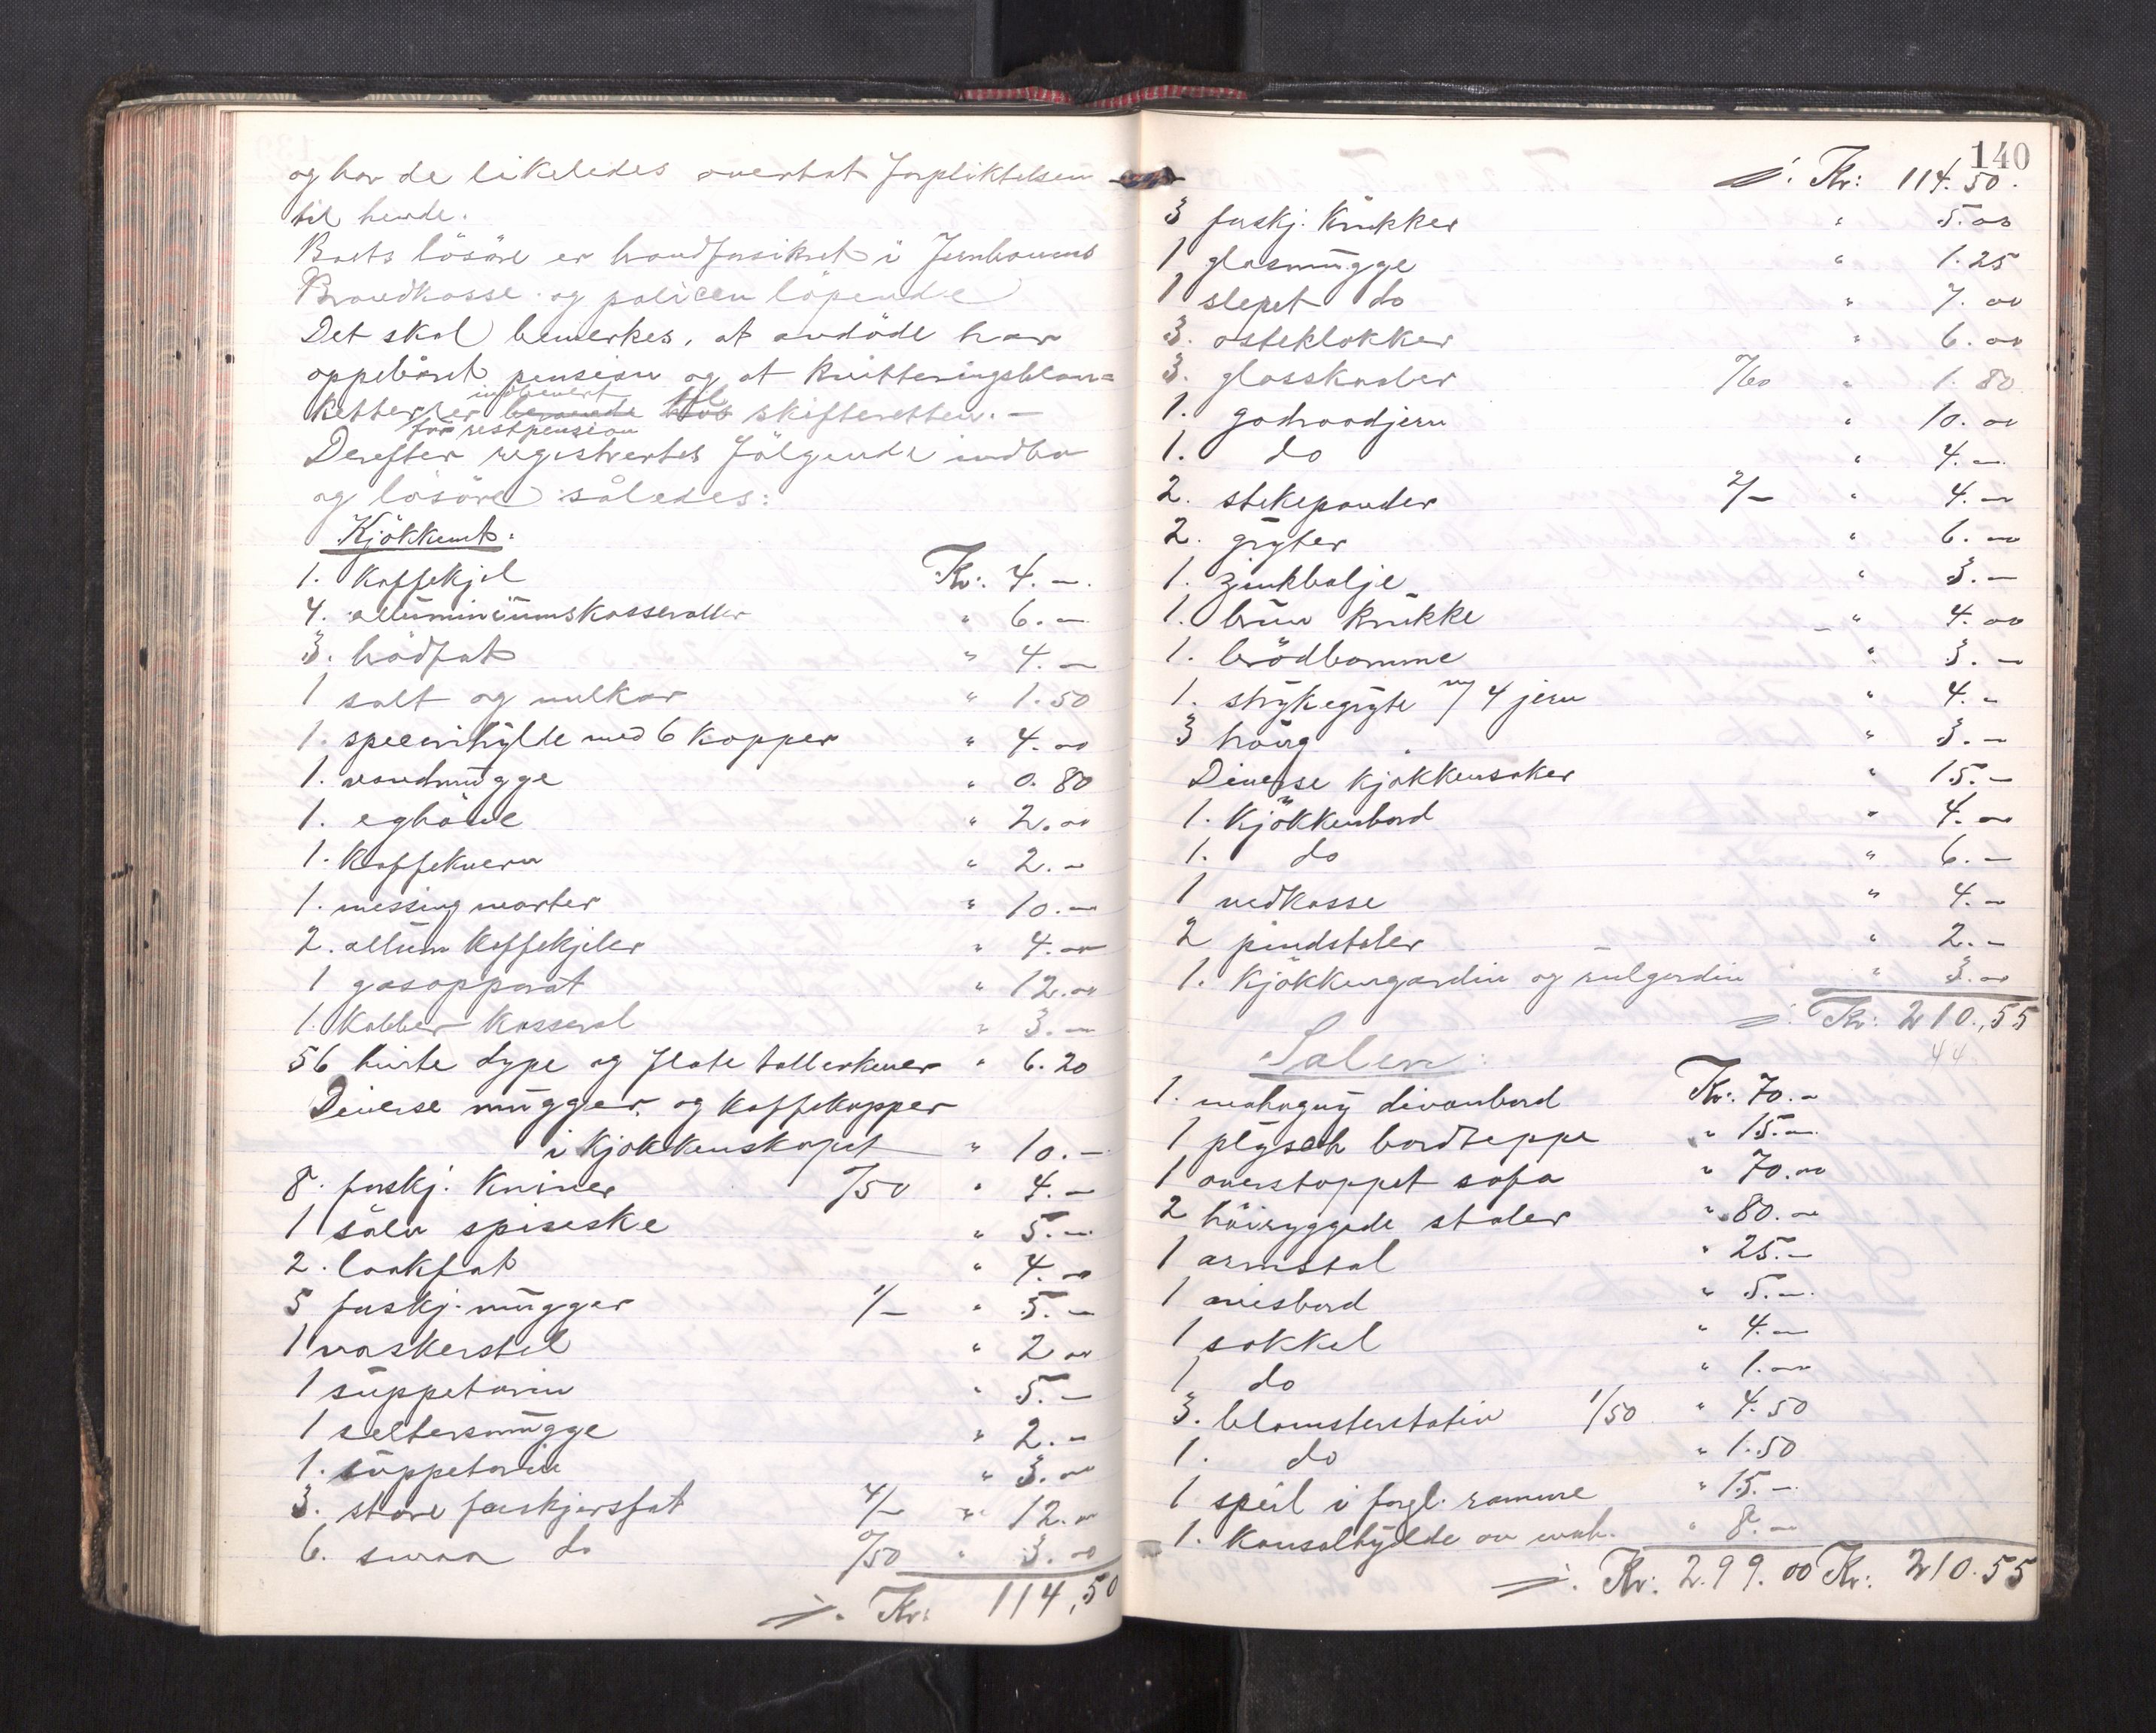 og har de likeledes overtat forpliktelsen
til hende.
Boets lösöre er brandforsikret i Jernbanens
Brandkasse og policen löpende
Det skal bemerkes, at avdöde har
oppebåret pension og at kvitteringsblan=
ketter for restpension er indlevert til skifteretten. —
Derefter registrertes følgende indbo
og lösöre således:
Kjökkenet:
1. Kaffekjel Kr: 4. —
4. alluminiumskasseroller " 6. —
3. brödfat " 4. —
1 salt og melkar " 1.50
1. speceri hylde med 6 Kopper " 4. 00
1. vandmugge " 0. 80
1. eghöne " 2. 00
1. Kaffekvern " 2. —
1. messing morter " 10. —
2. allum Kaffekjeler " 4. 00
1 gasapparat " 12. 00
1. Kobber Kasserol " 3. —
56 hvite dype og flate tallerkener " 6. 20
Diverse mugger og Kaffekopper
i Kjökkenskapet " 10. —
8. forskj. Kniver º/50 " 4. —
1 sölv spiseske " 5. —
2. lokfat " 4. 00
5 forskj. mugger 1/— " 5. —
1 vaskerstel " 2 00
1 suppeterin " 5. —
1 seltersmugge " 2. —
1. suppeterin " 3. 00
3. store forskjærsfat 4/— " 12. 00
6. smaa do º/50 " 3. 00
./. Kr: 114,50
140
./. Kr: 114. 50.
3 forskj. Krukker " 5. 00
1 glasmugge " 1. 25
1 slepet do " 7. 00
3. osteklokker " 6. 00
3. glasskaaler º/60 " 1. 80
1. godraadjern " 10. 00
1. do " 4. —
2. stekepander 2/— " 4. —
2. gryter " 6. —
1. zinkbalje " 3. —
1. brun Krukke " 4. 00
1. brödbomme " 3. —
1. strykegryte m/ 4 jern " 4. —
3 " 3. —
Diverse Kjökkensaker " 15. —
1. Kjökkenbord " 4. 00
1. do " 6. —
1 vedkasse " 4. —
2 pindstoler " 2. —
1. Kjökkengardin og rulgardin " 3. 00
./. Kr: 210,55
44
Salen:
1. mahogny divanbord Kr: 70. —
1 plysch bordteppe " 15. —
1 overstoppet sofa " 70. 00
2 höiryggede stoler " 80. —
1 armstol " 25. —
1 avisbord " 5. —
1 sokkel " 4. —
1 do " 1. 00
3. blomsterstativ 1/50 " 4. 50
1. do " 1. 50
1 speil i forgl. ramme " 15. —
1. Konsolhylde av mah. " 8. —
./. Kr: 299. 00 Kr: 210. 55